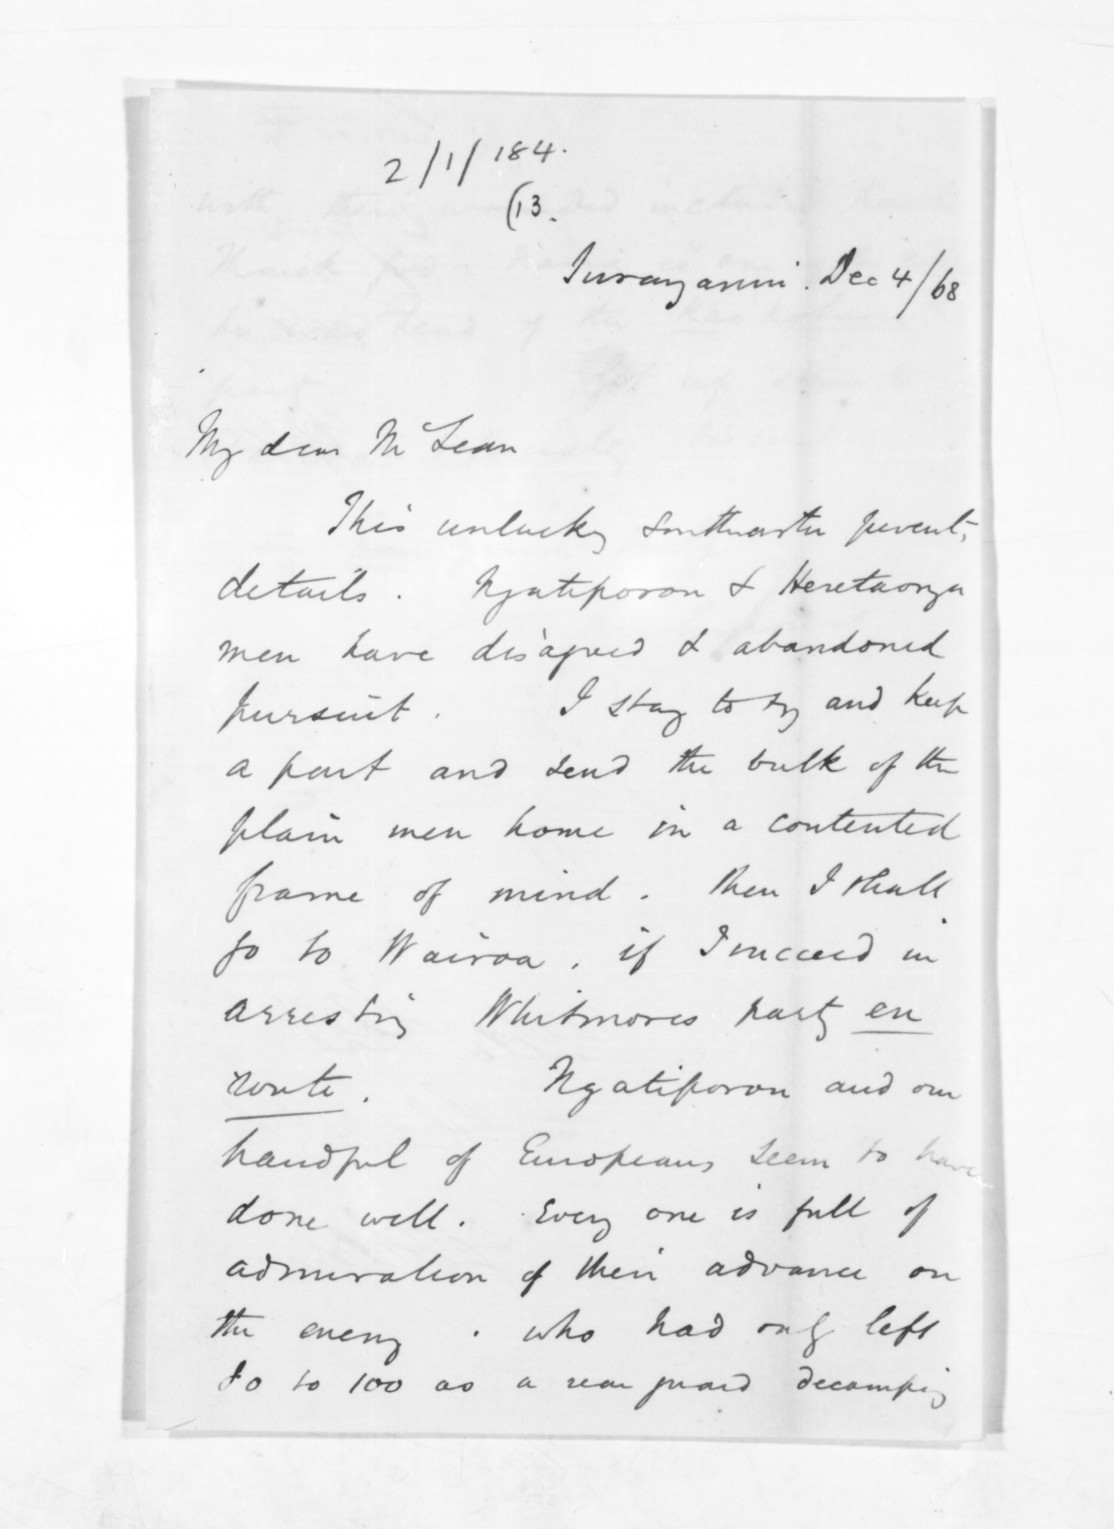 2/1/184.
(13.
Turanganui. Dec 4/68
My dear McLean
This unlucky southeaster prevents
details. Ngatiporou & Heretaonga
men have disagreed & abandoned
pursuit. I stay to try and keep
a part and send the bulk of the
plain men home in a contented
frame of mind. Then I shall
go to Wairoa, if I succeed in
arresting Whitmores party en
route. Ngatiporou and our
handful of Europeans seem to have
done well. Every one is full of
admiration of their advance on
the enemy. who had only left
to 100 as a rear guard decamping